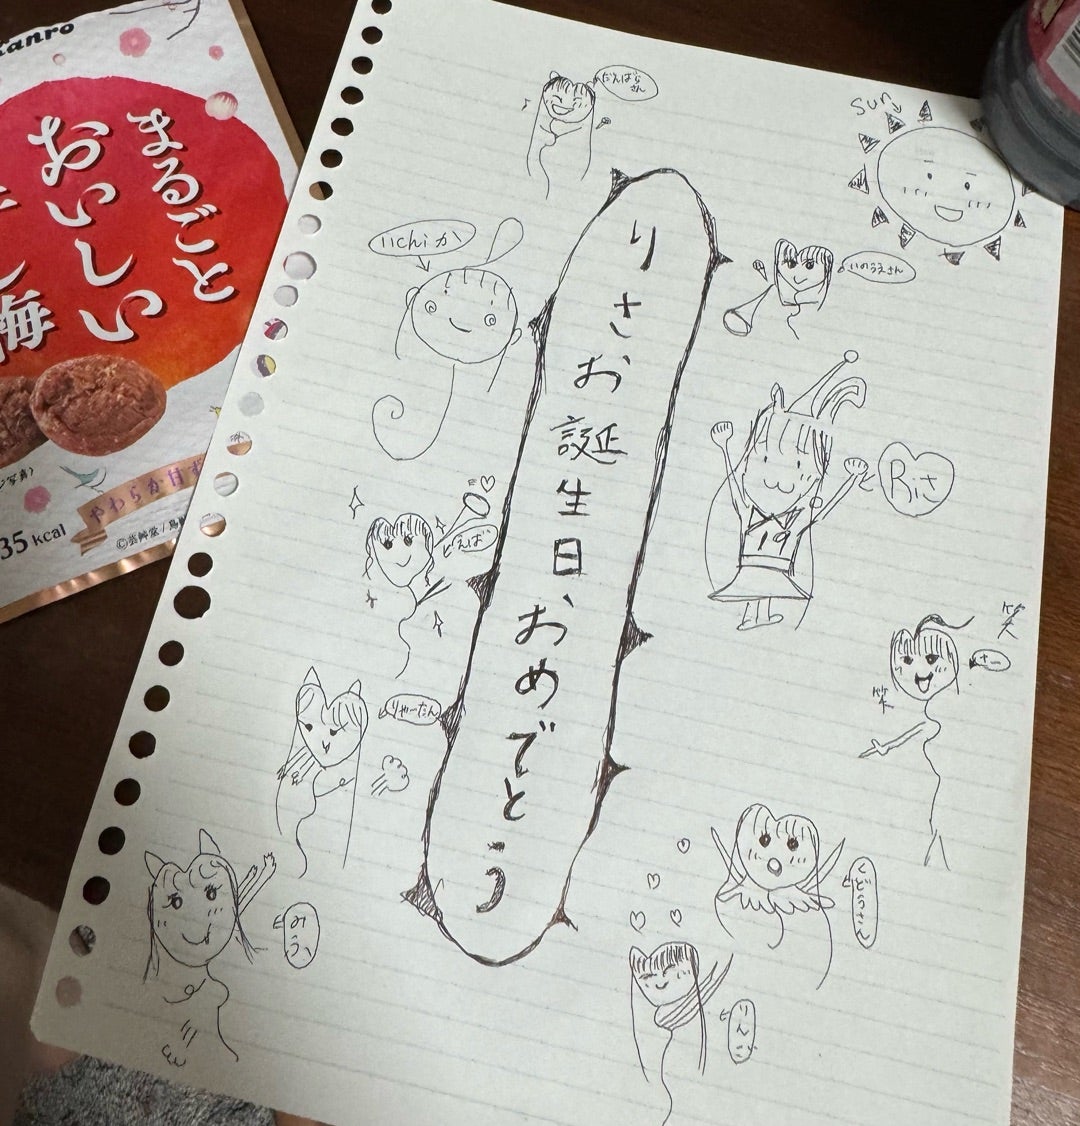 Kanro
まるごと
おいしい
梅
やわらか甘ず
35 kcal
だんばらさん
sun
りさお誕生日、おめでとう
いchiか
いのうえさん
Riさ
19
えば
笑
さー
笑
りゃーたん
みう
くどうさん
りんご